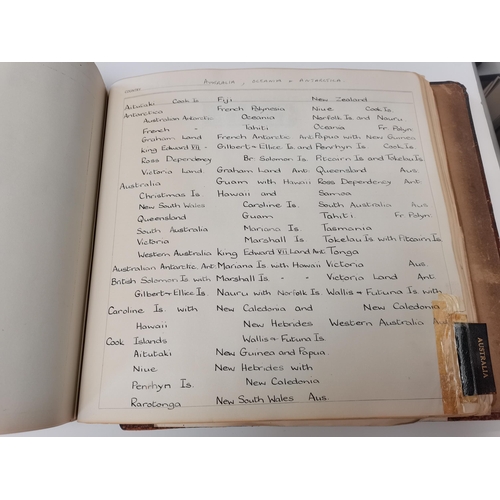 AUSTRALIA, OCEANIA & ANTARCTICA
Aitutaki Cook Is
Antarctica
Australian Antarctic
French
Graham Land
King Edward VII
Ross Dependency
Victoria Land
Australia
Christmas Is.
New South Wales
Queensland
South Australia
Victoria
Western Australia
Australian Antarctic Ant.
British Solomon Is with
Gilbert & Ellice Is.
Caroline Is. with
Hawaii
Cook Islands
Aitutaki
Niue
Penrhyn Is.
Rarotonga
Fyi
French Polynesia
Oceania
Tahiti
French Antarctic Ant.
Gilbert & Ellice Is and
Br Solomon Is.
Graham Land Ant.
Guam with Hawaii
Hawaii and
Caroline Is.
Guam
Mariana Is.
Marshall Is.
King Edward VII Land Ant.
Mariana Is with Hawaii
Marshall Is. " "
Nauru with Norfolk Is.
New Caledonia and
New Hebrides
Wallis & Futuna Is.
New Guinea and Papua.
New Hebrides with
New Caledonia
New South Wales Aus.
New Zealand
Niue Cook Is.
Norfolk Is and Nauru
Oceania Fr Polyn.
Papua with New Guinea
Penrhyn Is Cook Is.
Pitcairn Is and Tokelau Is
Queensland Aus
Ross Dependency Ant.
Samoa
South Australia Aus
Tahiti Fr Polyn.
Tasmania
Tokelau Is with Pitcairn Is
Tonga
Victoria Aus.
Victoria Land Ant.
Wallis & Futuna Is with
New Caledonia
Western Australia
AUSTRALIA